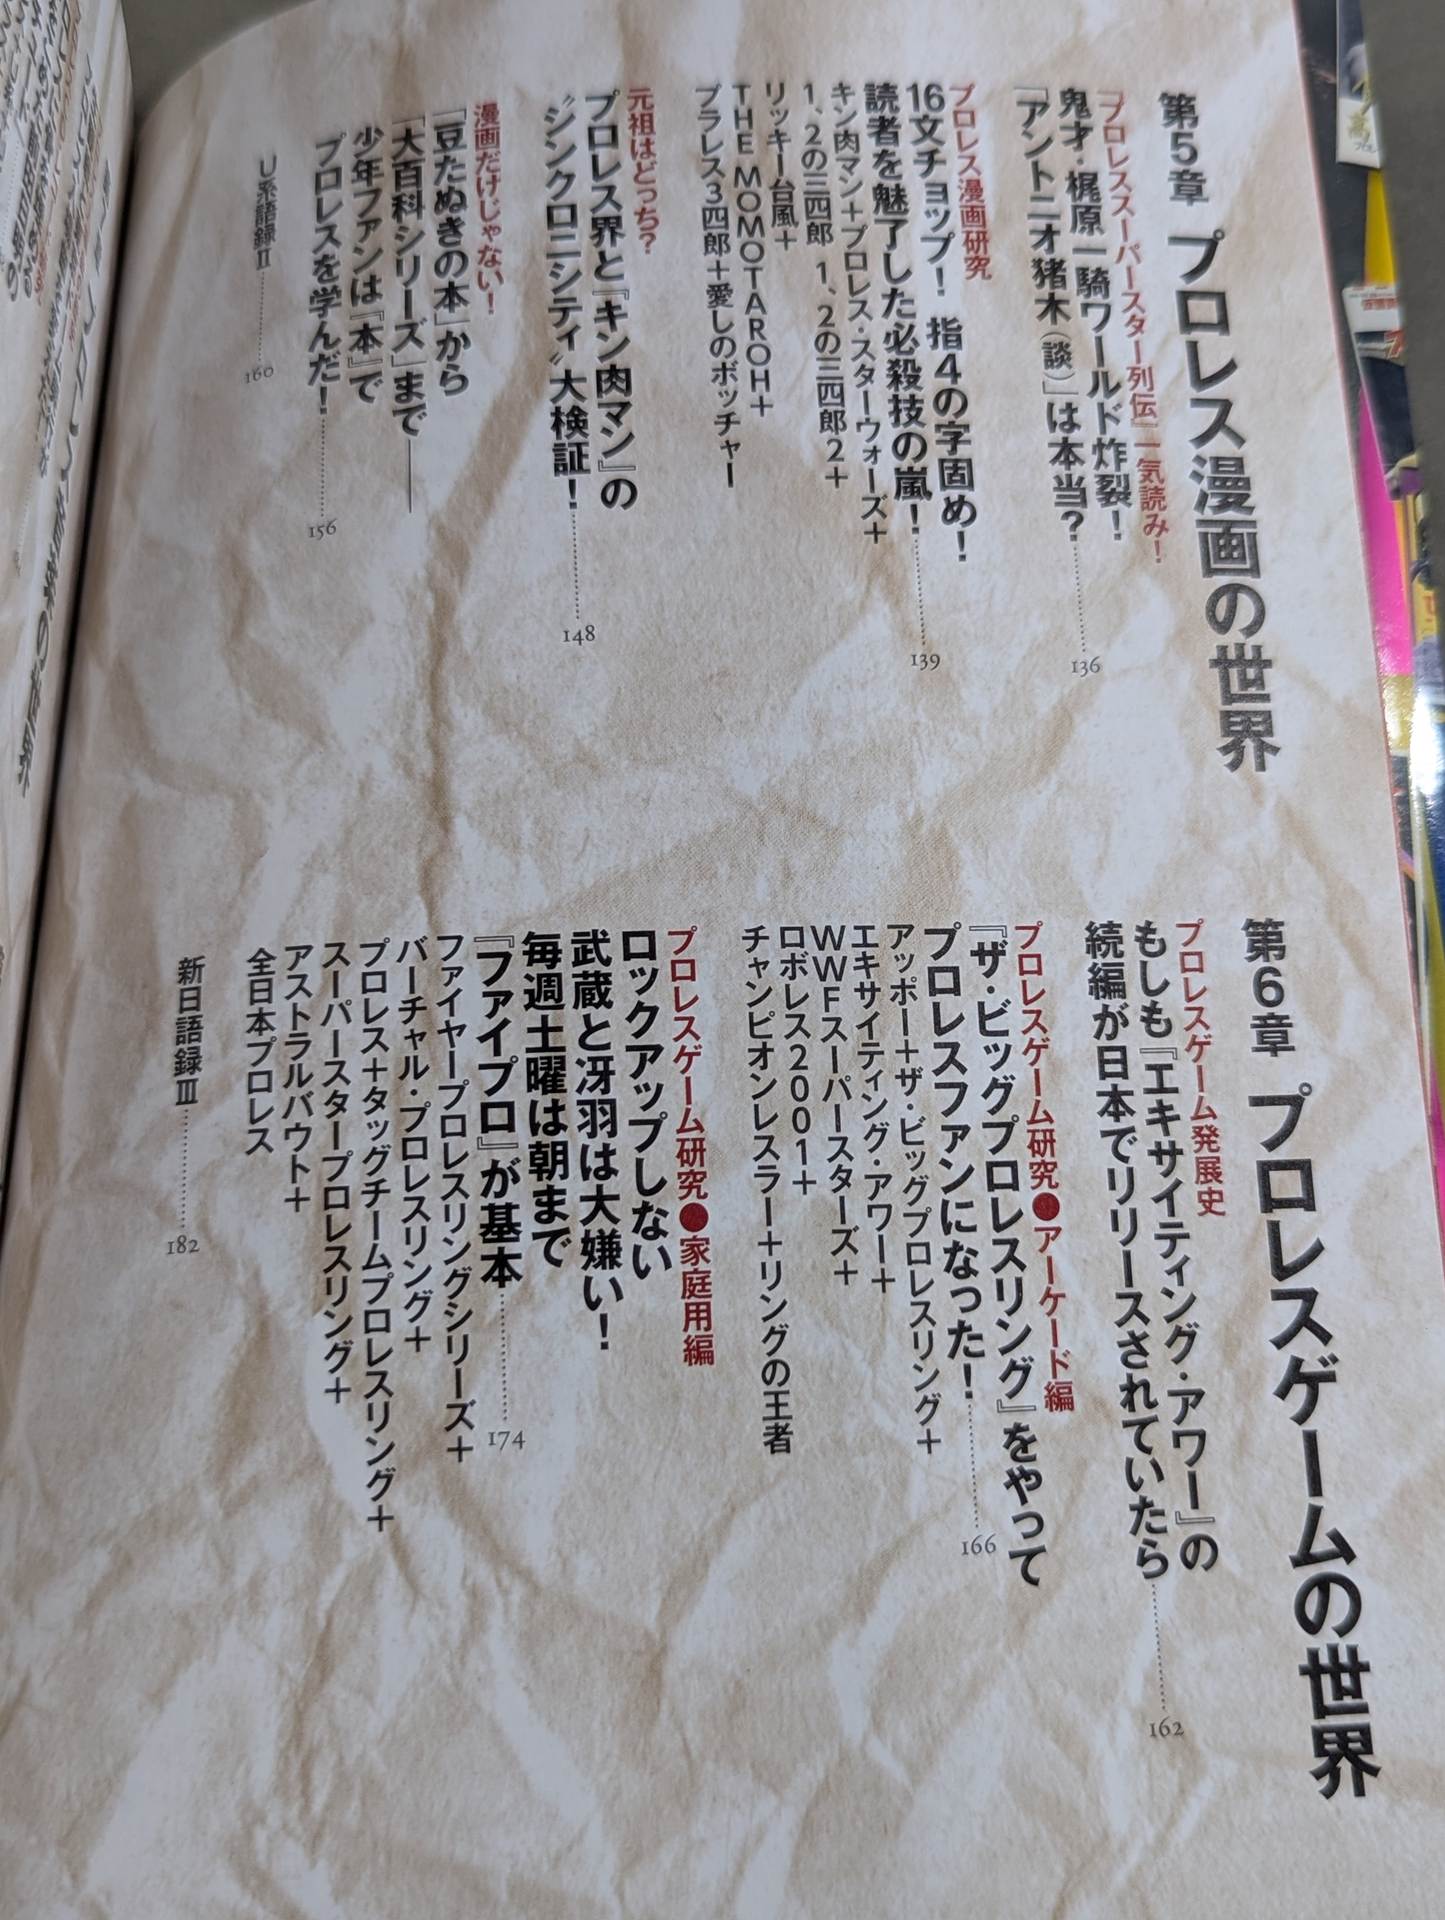 第5章 プロレス漫画の世界
『プロレススーパースター列伝』一気読み！
鬼才・梶原一騎ワールド炸裂！
「アントニオ猪木（談）」は本当？ 136
プロレス漫画研究
16文チョップ！ 指4の字固め！
読者を魅了した必殺技の嵐！ 139
キン肉マン＋プロレス・スターウォーズ＋
1、2の三四郎 1、2の三四郎2＋
リッキー台風＋
THE MOMOTAROH＋
プラレス3四郎＋愛しのボッチャー
元祖はどっち？
プロレス界と『キン肉マン』の
〝シンクロニシティ〟大検証！ 148
漫画だけじゃない！
「豆たぬきの本」から
「大百科シリーズ」まで――
少年ファンは『本』で
プロレスを学んだ！ 156
U系語録Ⅱ 160
第6章 プロレスゲームの世界
プロレスゲーム発展史
もしも『エキサイティング・アワー』の
続編が日本でリリースされていたら 162
プロレスゲーム研究●アーケード編
『ザ・ビッグプロレスリング』をやって
プロレスファンになった！ 166
アッポー＋ザ・ビッグプロレスリング＋
エキサイティング・アワー＋
WWFスーパースターズ＋
ロボレス2001＋
チャンピオンレスラー＋リングの王者
プロレスゲーム研究●家庭用編
ロックアップしない
武蔵と冴羽は大嫌い！
毎週土曜は朝まで
『ファイプロ』が基本 174
ファイヤープロレスリングシリーズ＋
バーチャル・プロレスリング＋
プロレス＋タッグチームプロレスリング＋
スーパースタープロレスリング＋
アストラルバウト＋
全日本プロレス
新日語録Ⅲ 182